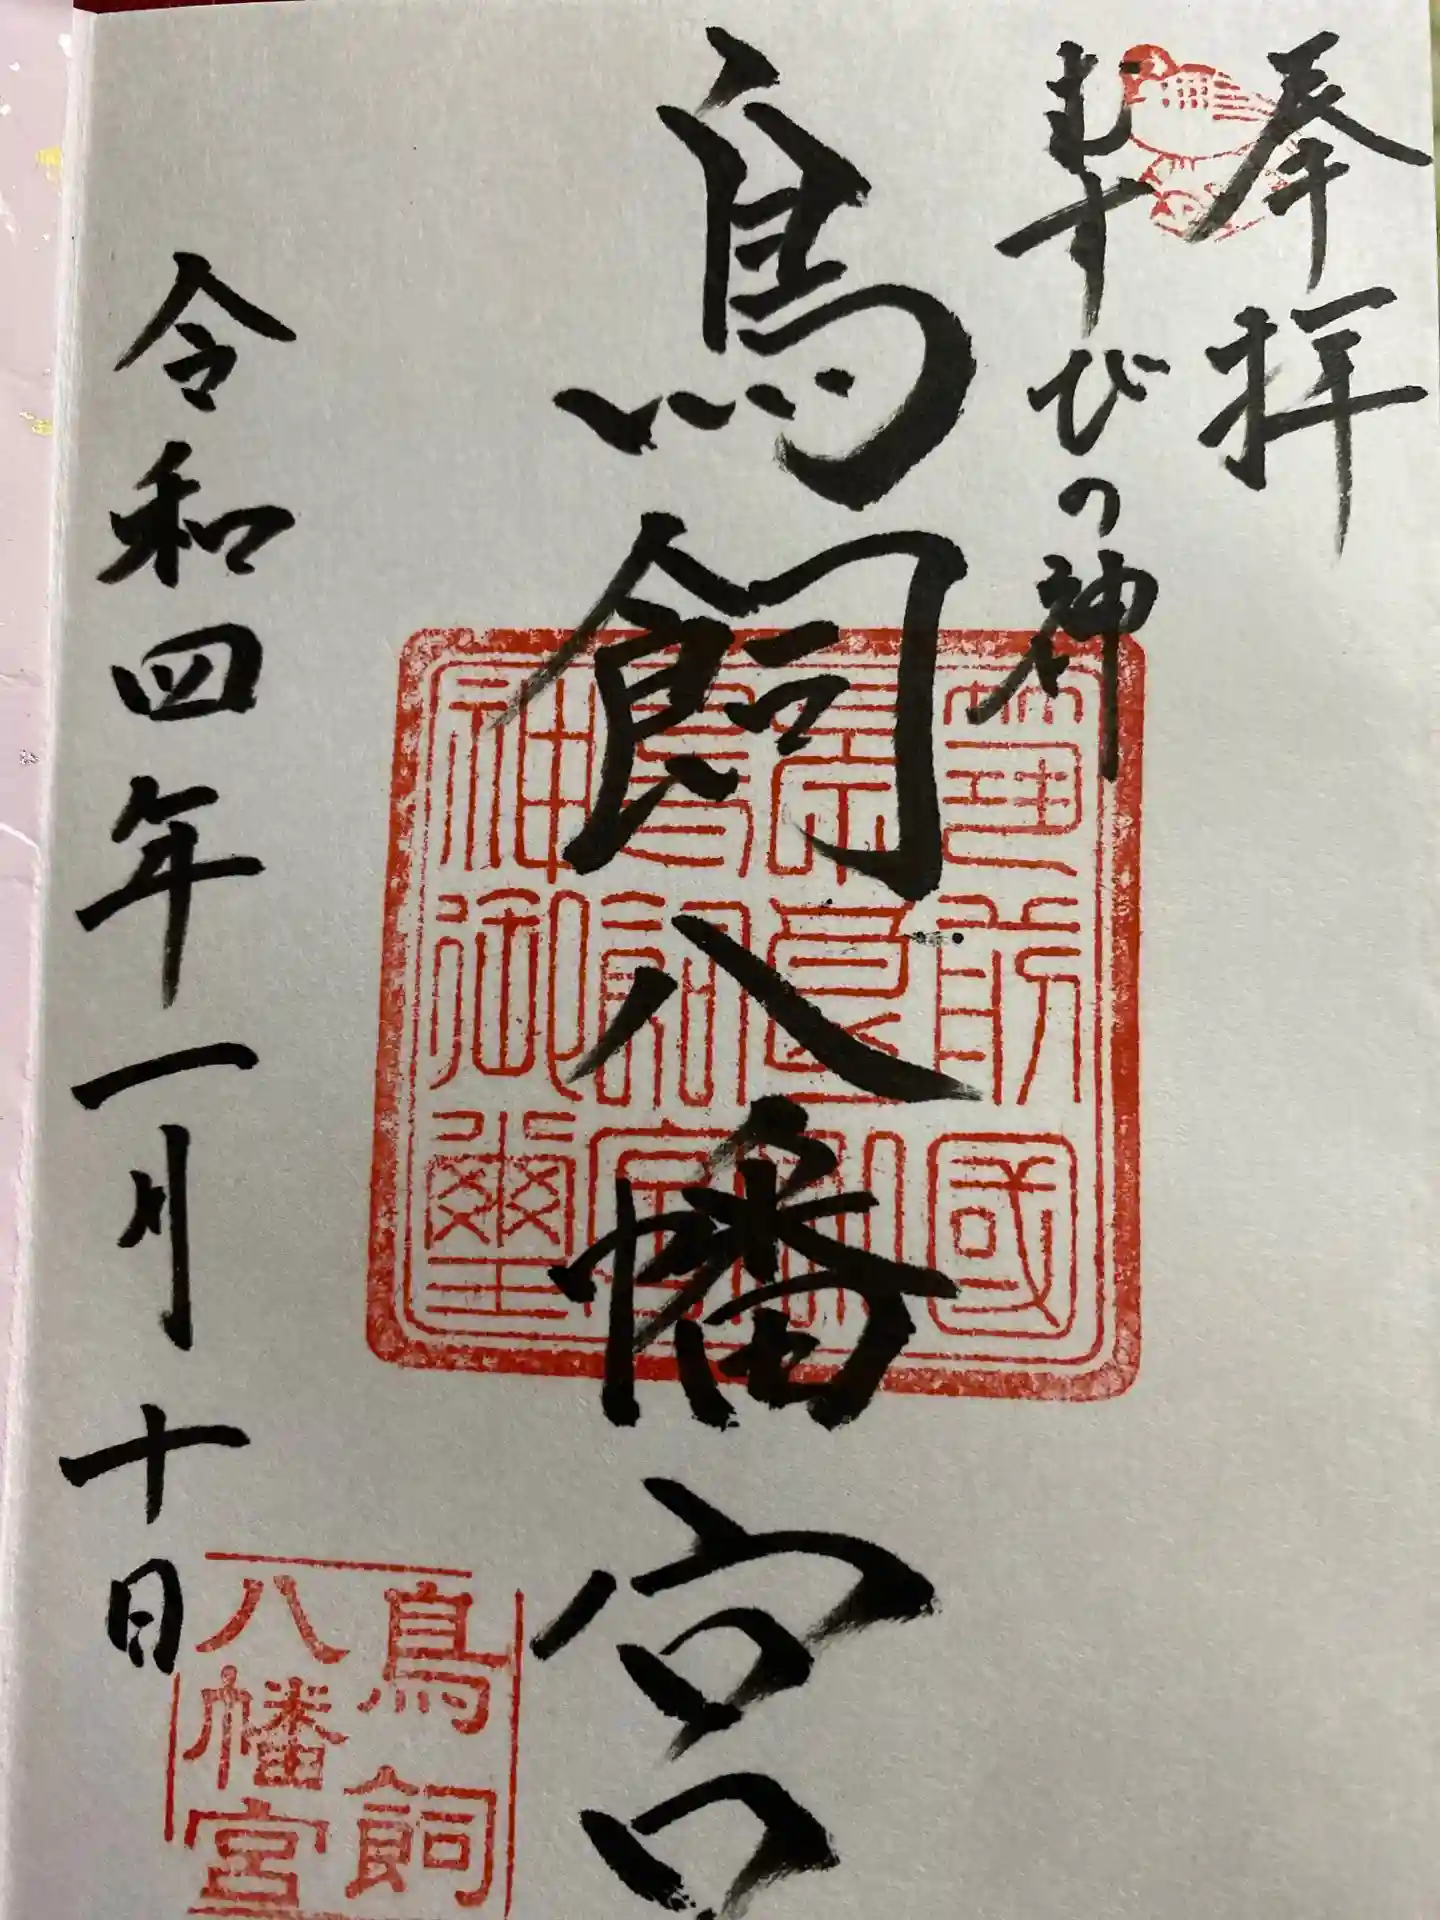 奉拝
むすびの神
鳥飼八幡宮
筑前國
鳥飼宮
神御璽
令和四年一月十日
鳥飼
八幡宮